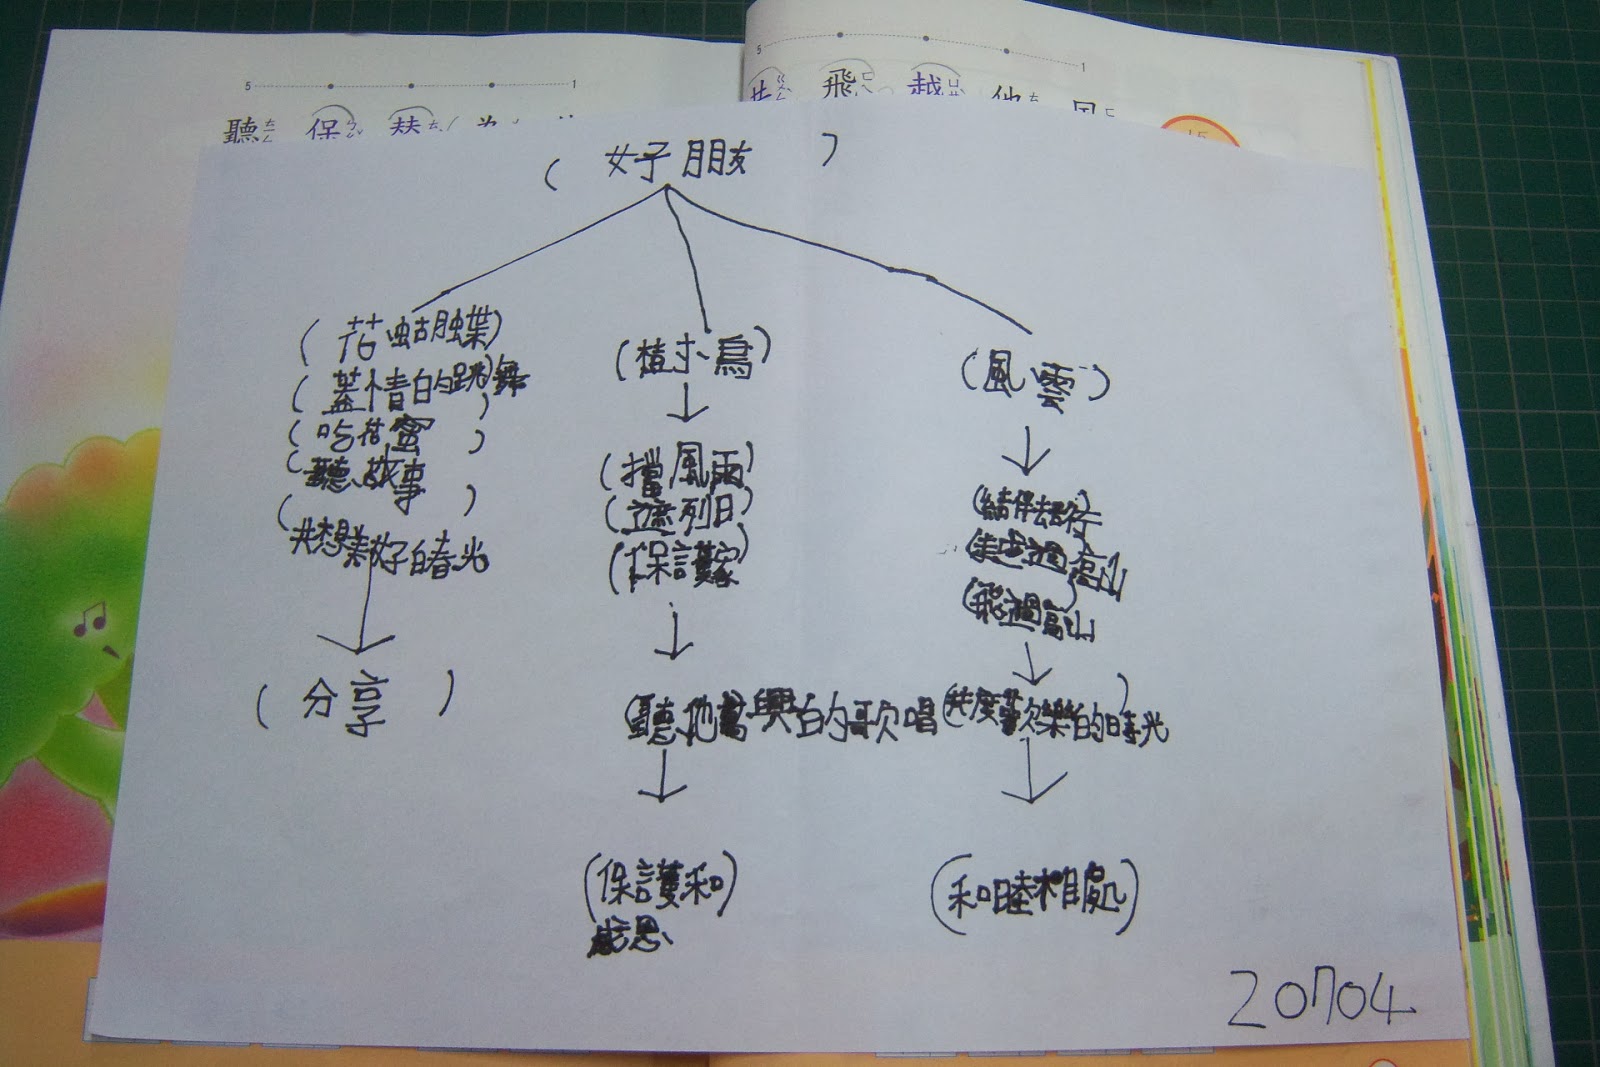 5 1
5 1
聽 保 扶
飛 越 他
15
( 好朋友 )
( 花蝴蝶)
(盡情的跳舞)
(吃花蜜)
(聽故事)
(共想美好白春光
( 分享 )
(樹小鳥)
(擋風雨)
(遮列日)
(保護家)
(聽他高興的歌唱
(保護和)
感恩
(風雲)
(結伴去旅行)
走過高山
(飛過高山)
(共度歡樂的時光)
(和睦相處)
20704